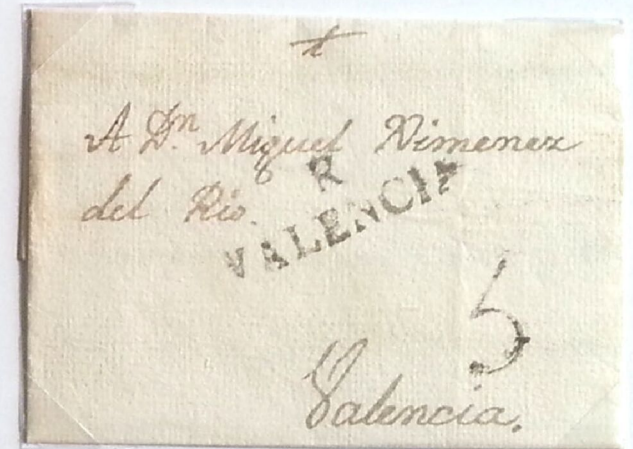 A Dn. Miguel Ximenez
del Rio.
R
VALENCIA
5
Valencia.